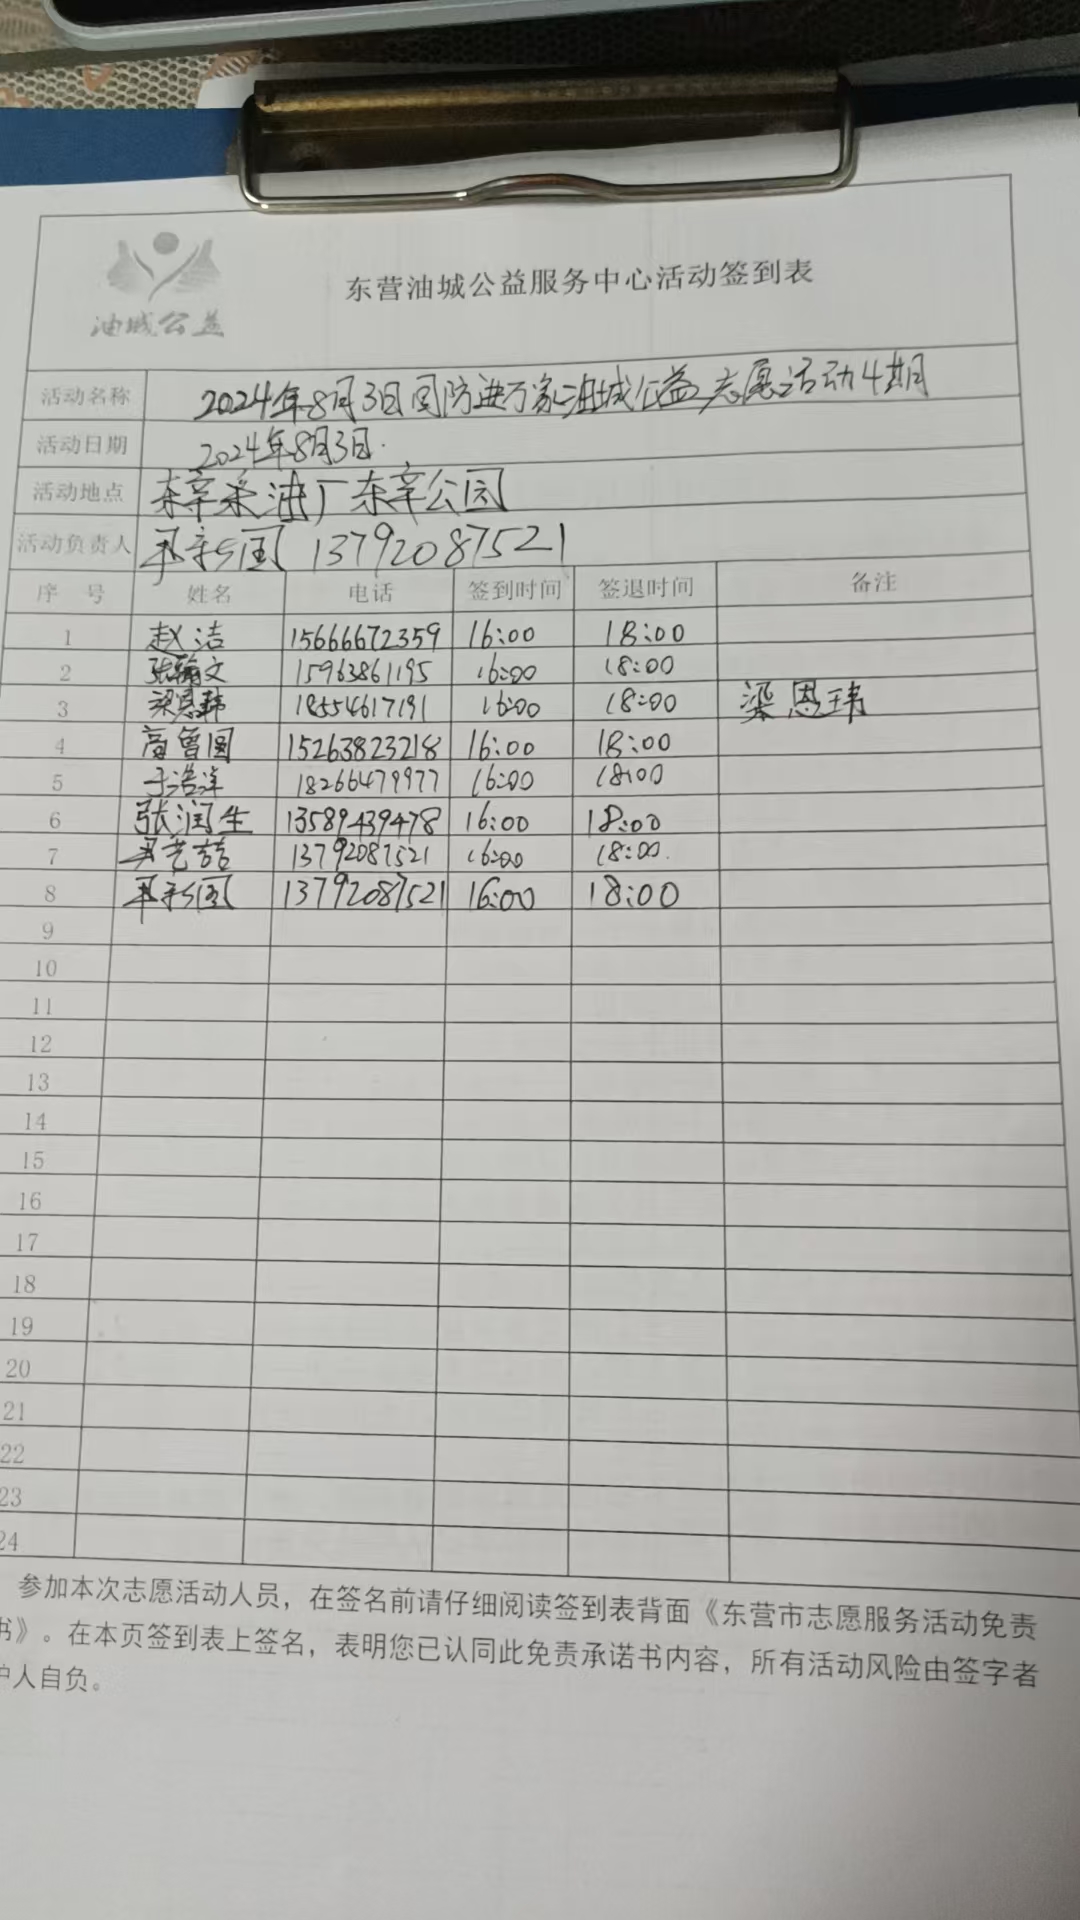 油城公益
东营油城公益服务中心活动签到表
活动名称 2024年8月3日国防进万家油城公益志愿活动4期
活动日期 2024年8月3日.
活动地点 东辛采油厂东辛公园
活动负责人 13792087521
序 号 姓名 电话 签到时间 签退时间 备注
1 赵洁 15666672359 16:00 18:00
2 张翰文 15963861195 16:00 18:00
3 梁恩玮 18554617191 16:00 18:00 梁恩玮
4 商曾国 15263823218 16:00 18:00
5 于浩洋 18266479977 16:00 18:00
6 张润生 13589439478 16:00 18:00
7 13792087521 16:00 18:00.
8 13792087521 16:00 18:00
9
10
11
12
13
14
15
16
17
18
19
20
21
22
23
24
参加本次志愿活动人员，在签名前请仔细阅读签到表背面《东营市志愿服务活动免责
书》。在本页签到表上签名，表明您已认同此免责承诺书内容，所有活动风险由签字者
护人自负。